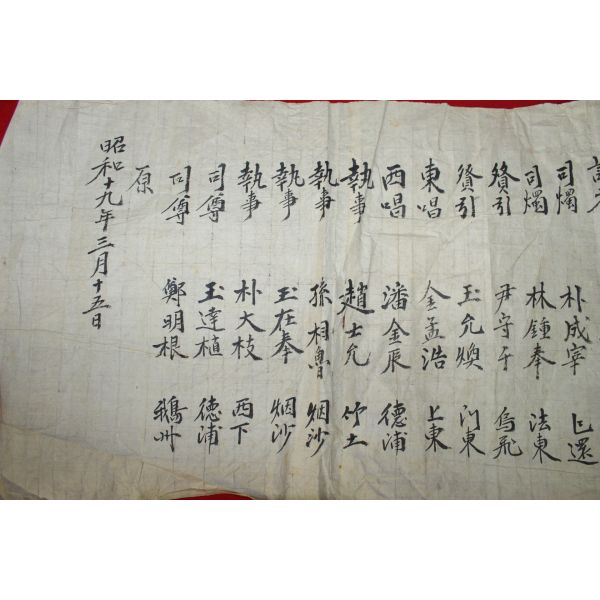 司燭 朴成宰
司燭 林鍾奉 法東
贊引 尹守 烏飛
贊引 玉允煥 門東
東唱 金孟浩 上東
西唱 潘金辰 德浦
執事 趙士允 竹土
執事 孫相魯 烟沙
執事 玉在奉 烟沙
執事 朴大枝 西下
司尊 玉達植 德浦
司尊 鄭明根 鵝州
原
昭和十九年三月十五日